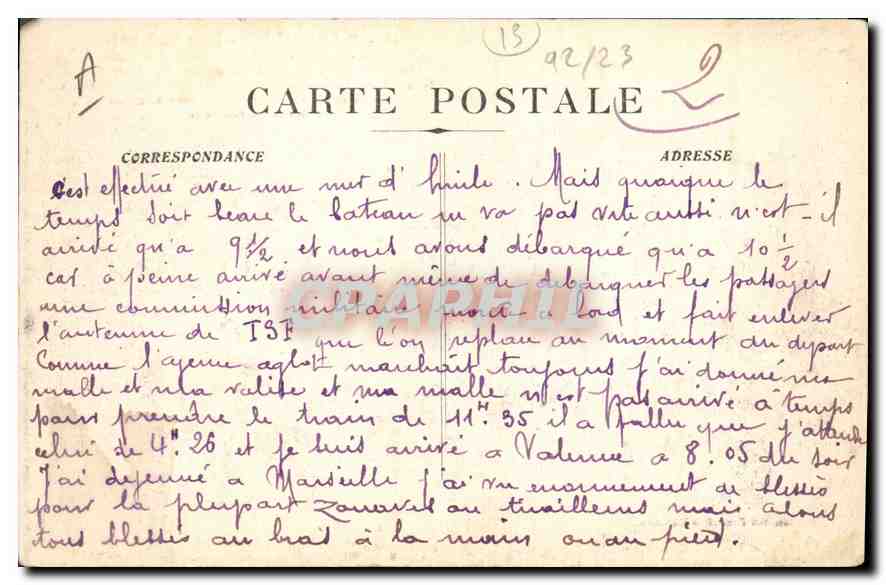 13
92/23
A
2
CARTE POSTALE
CORRESPONDANCE
ADRESSE
c'est effectué avec une mer d'huile. Mais quoique le
temps soit beau le bateau ne va pas vite aussi n'est-il
arrivé qu'a 9 1/2 et nous avons débarqué qu'a 10 1/2
car à peine arrivé avant même de debarquer les passagers
une commission militaire monte a bord et fait enlever
l'antenne de TSF que l'on replace au moment du depart
Comme l'agence marchait toujours j'ai donné ma
malle et ma valise et ma malle n'est pas arrivé à temps
pour prendre le train de 11H.35 il a fallu que j'attende
celui de 4H.26 et je suis arrivé a Valence a 8.05 du soir
J'ai dejeuné a Marseille j'ai vu enormement de blessés
pour la plupart zouaves ou tirailleurs mais
tous blessés au bras à la main ou au pied.
CPARHIL